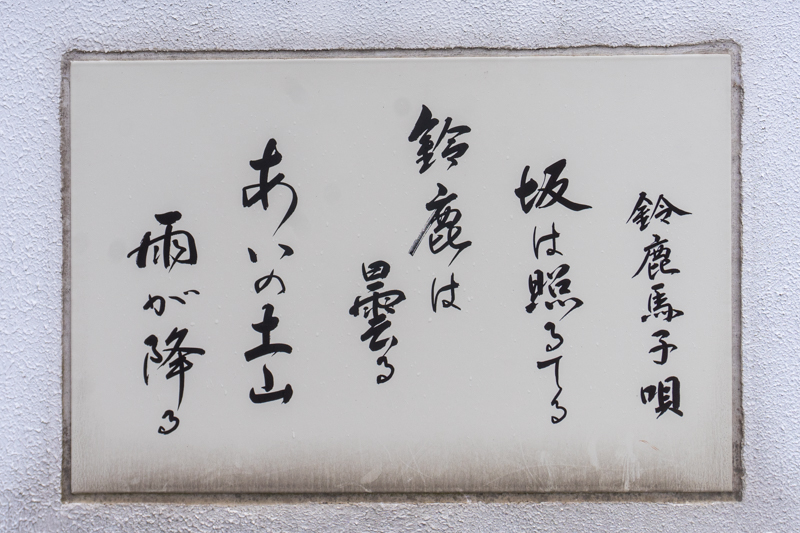 鈴鹿馬子唄
坂は照るてる
鈴鹿は
曇る
あいの土山
雨が降る